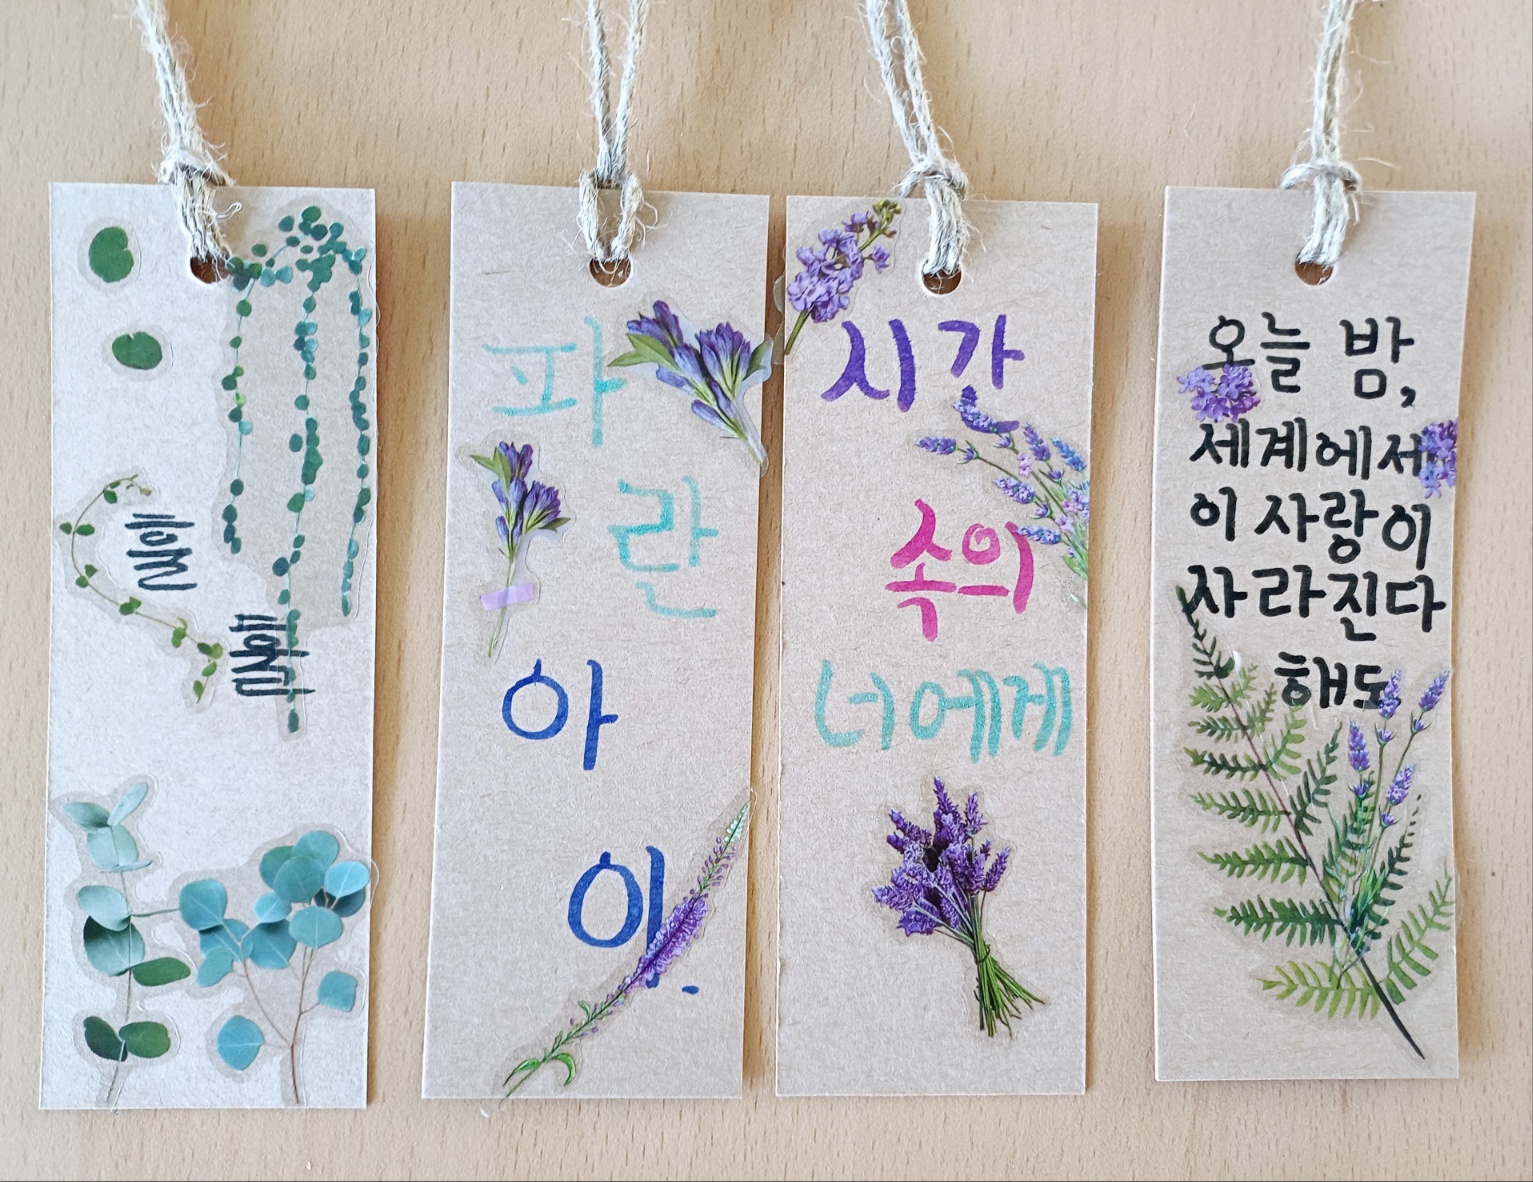 파
란
아
이.
시간
속의
너에게
오늘 밤,
세계에서
이 사랑이
사라진다
해도